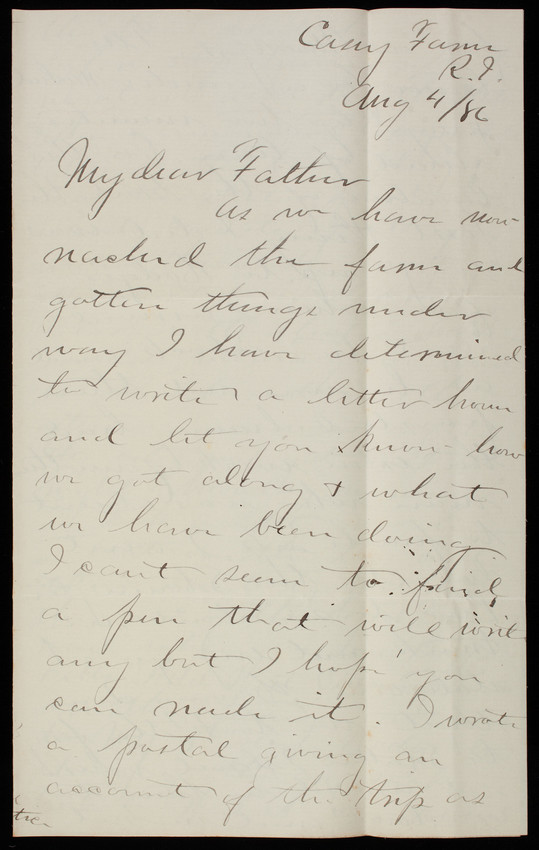 Casey Farm
R.I.
Aug 4/86
My dear Father
As we have now
reached the farm and
gotten things under
way I have determined
to write a letter home
and let you know how
we got along & what
we have been doing
I cant seem to find
a pen that will write
any but I hope you
can read it. I wrote
a postal giving an
account of the trip as